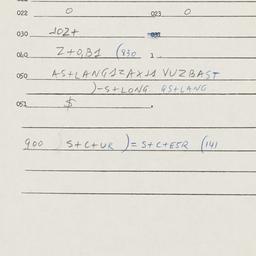 022 0 023 0
030 10Z+
040 Z+0,31 (930
050 AS+LANG1ZAX11 VUZBAST
)-S+LONG GS+LANG
051 $
900 S+C+UR )=S+C+ESR (141